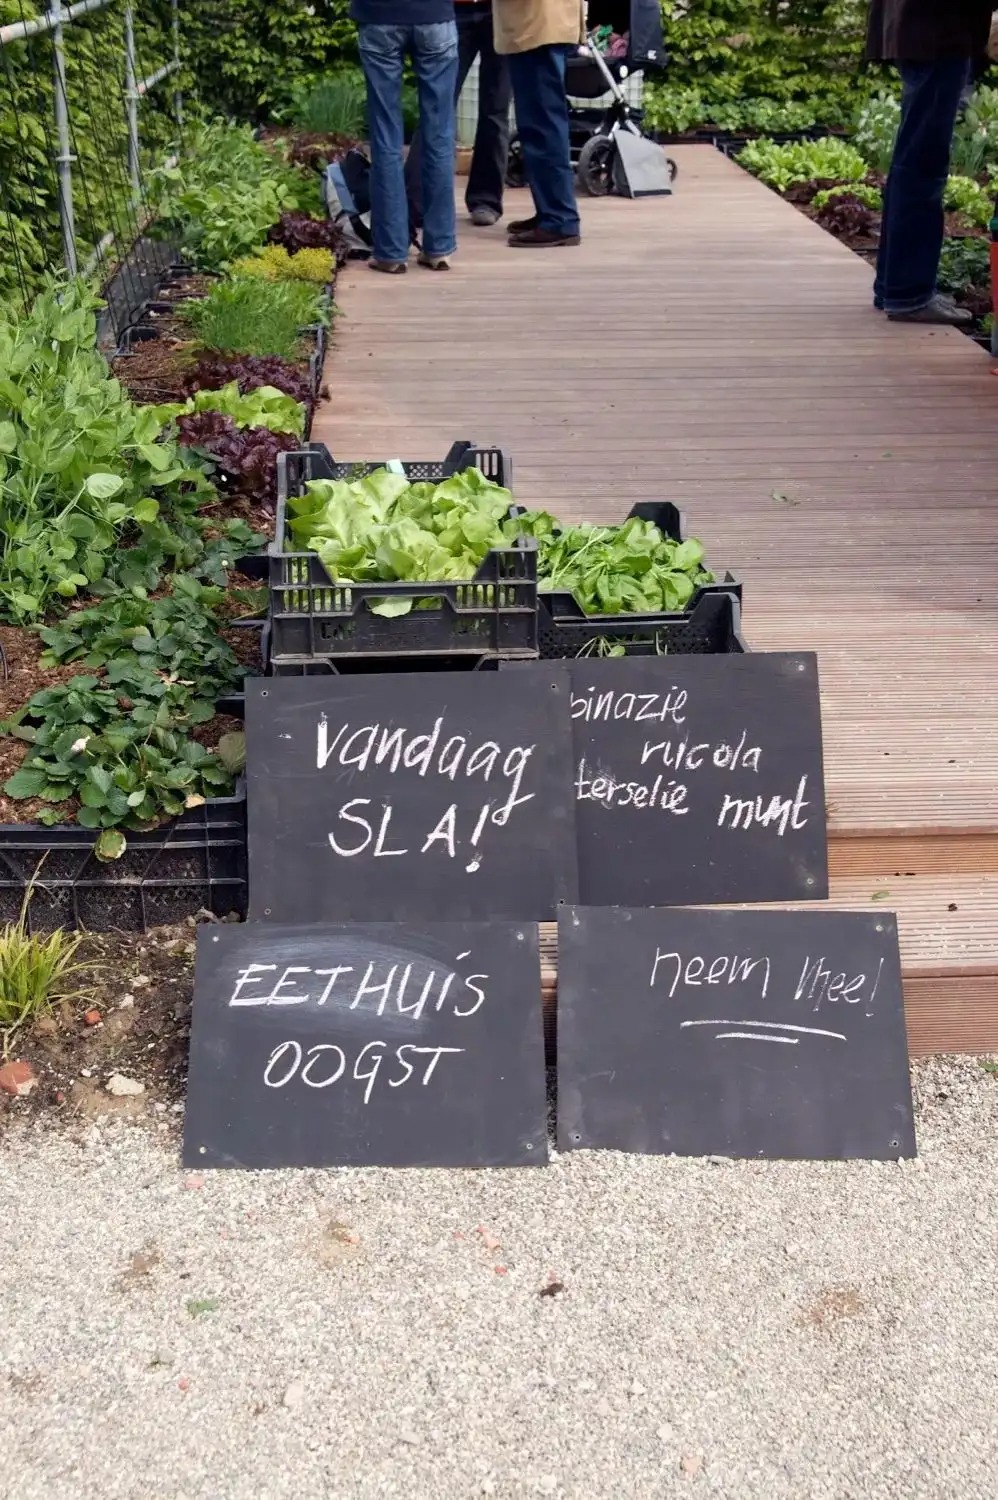 Vandaag
SLA!
pinazie
rucola
terselie munt
EETHUiS
OOGST
neem mee!